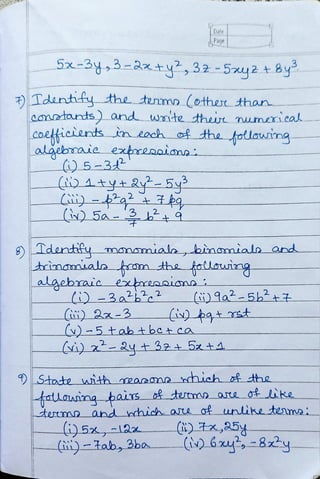 Date
Page
5x-3y, 3-2x+y², 3z-5xyz+8y³
7) Identify the terms (other than
constants) and write their numerical
coefficients in each of the following
algebraic expressions:
(i) 5-3t²
(ii) 1+y+2y²-5y³
(iii) -p²q²+7pq
(iv) 5a-3/7 b²+9
8) Identify monomials, binomials and
trinomials from the following
algebraic expressions:
(i) -3a²b²c² (ii) 9a²-5b²+7
(iii) 2x-3 (iv) pq+rst
(v) -5+ab+bc+ca
(vi) x²-2y+3z+5x+1
9) State with reasons which of the
following pairs of terms are of like
terms and which are of unlike terms:
(i) 5x, -12x (ii) 7x, 25y
(iii) -7ab, 3ba (iv) 6xy², -8x²y